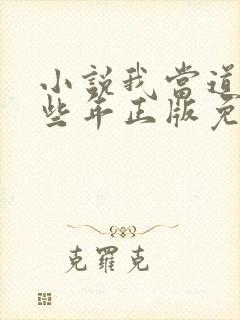 小説我當道
些年正版免
克羅克